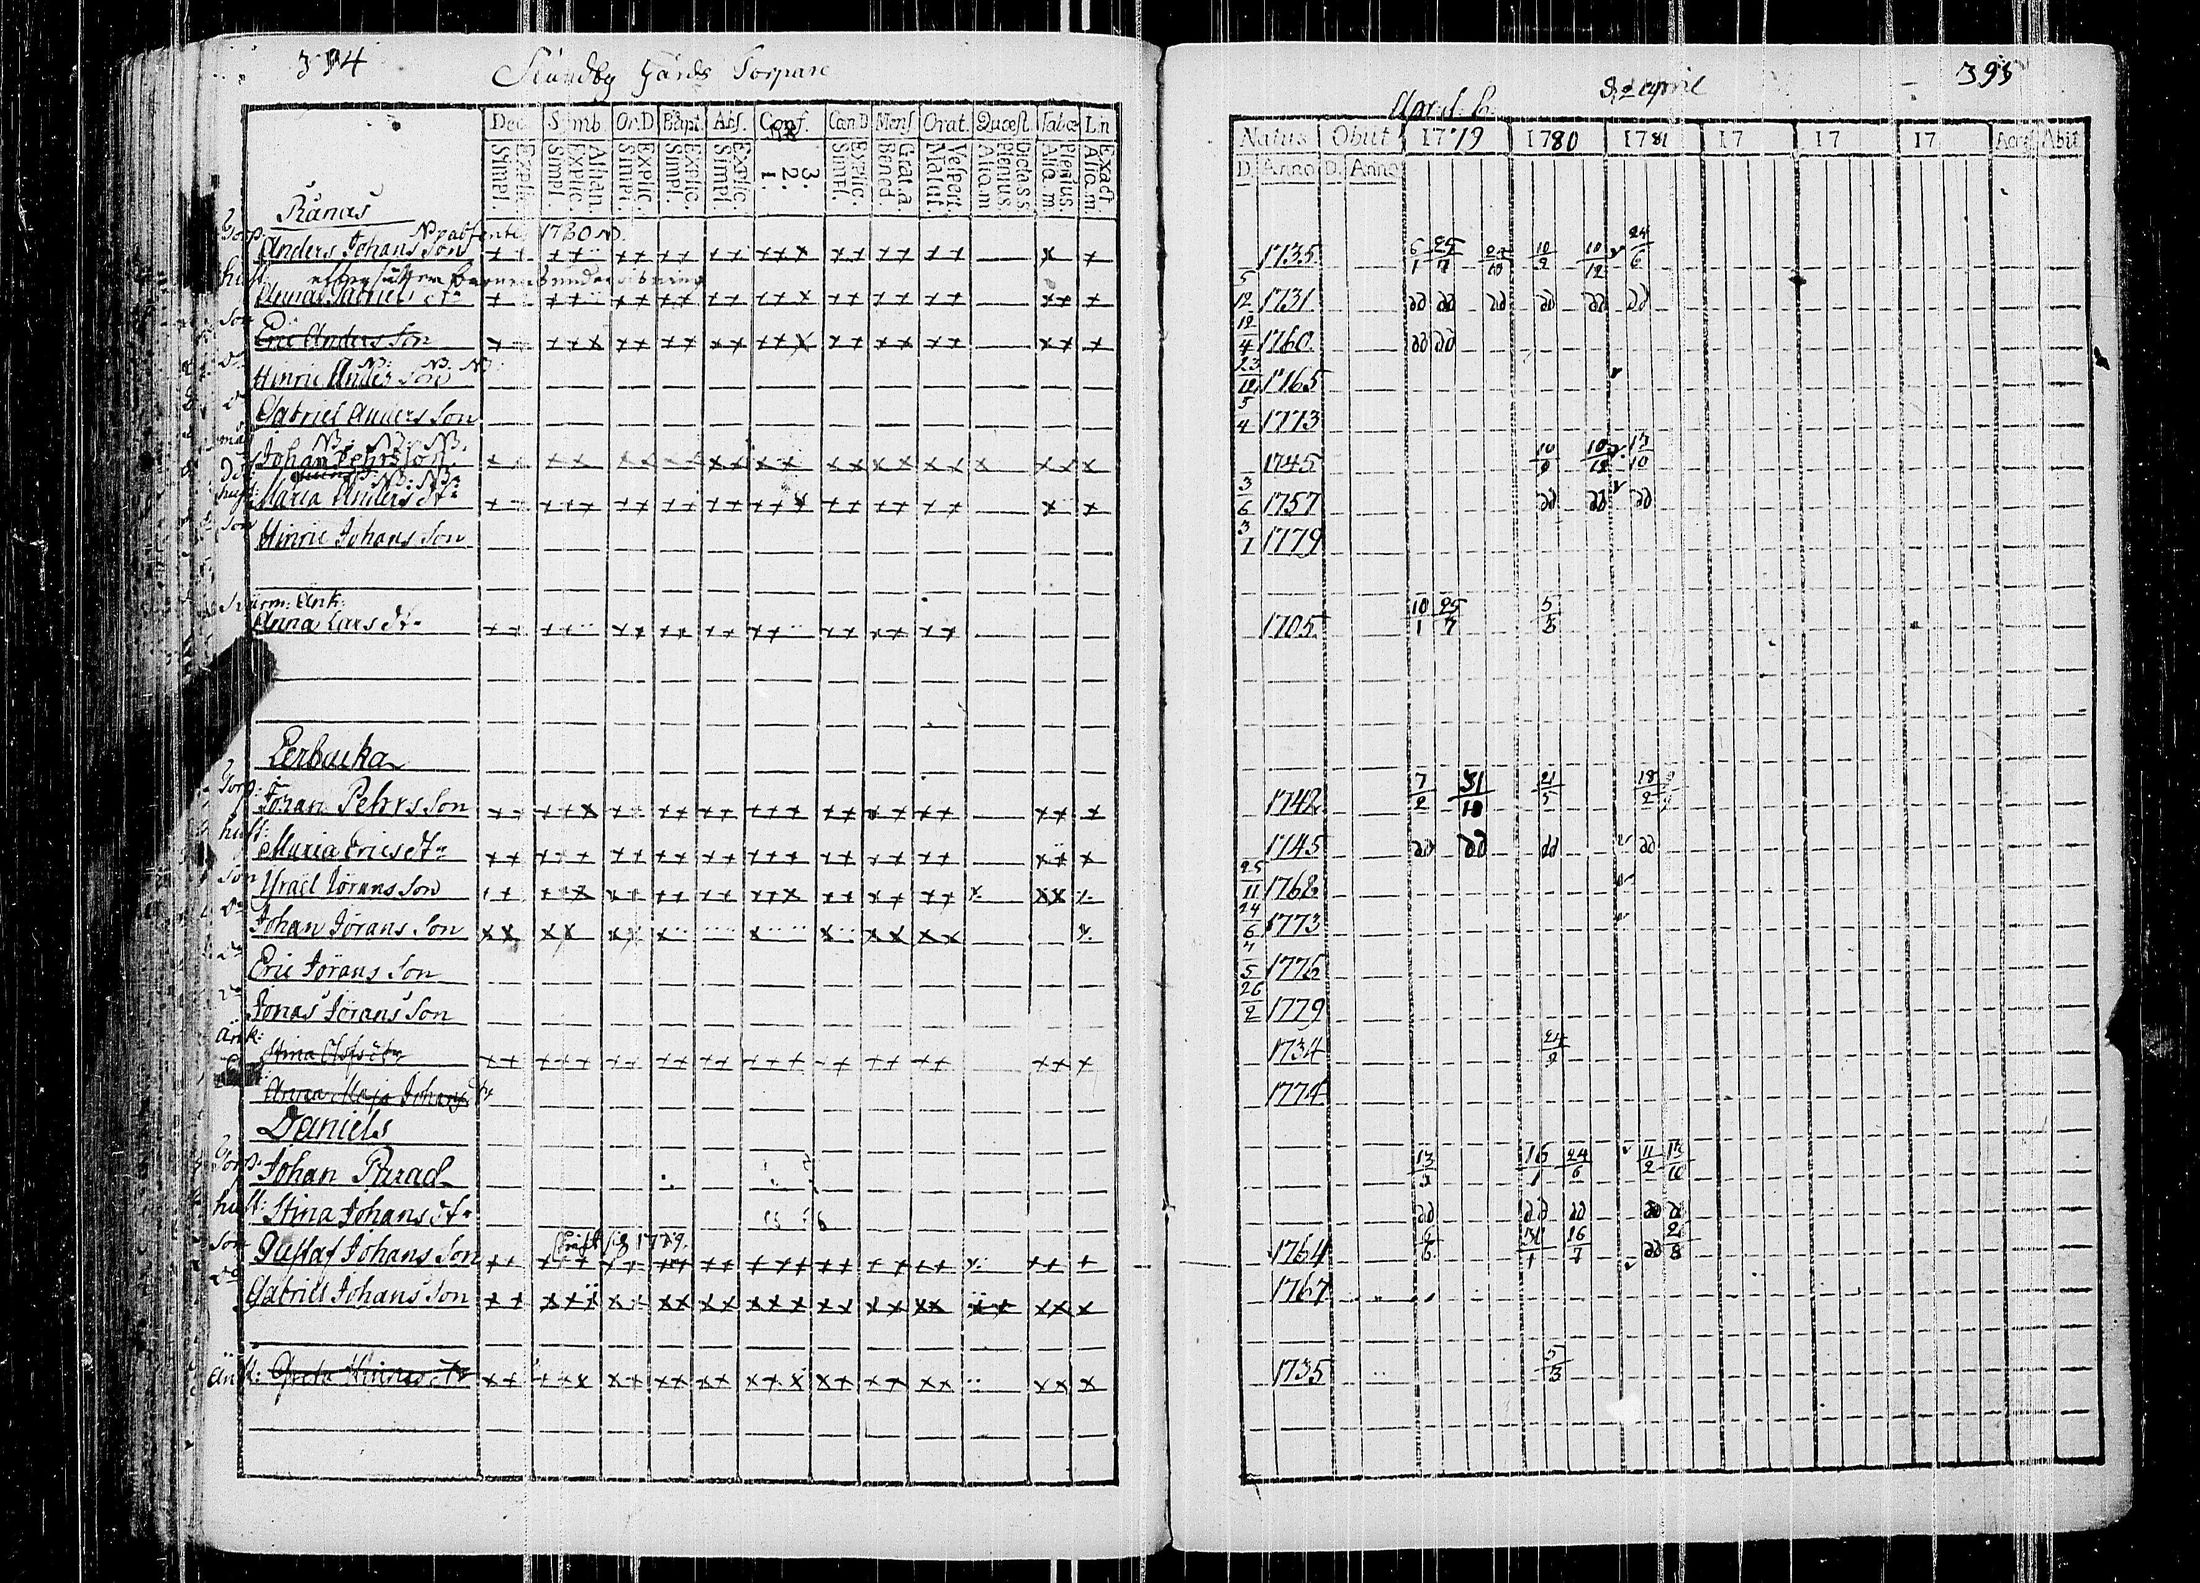 394
Gårds Torpare
Dec. Simb. Or.D Bapt. Abs. Conf. Can.D Mens. Orat. Quæst. Tabæ L.n
Explic. Simpl.
Athan. Explic. Simpl.
Explic. Simpl.
Explic. Simpl.
Explic. Simpl.
3. 2. 1.
Explic. Simpl.
Grat.a Bened.
Vespert. Matut.
Dicta S.S. Plenius. Aliq.m
Plenius. Aliq.m.
Exact. Aliq.m.
Ranas
1780
Torp: Anders Johans Son
hust:
son Eric Anders Son
Do Hinric Anders Son
Do Gabriel Anders Son
måg Johan Pehrs Son
hust: Maria Anders dr
son Hinric Johans Son
Änk:
Anna Lars dr
Lerbacka
Torp: Jöran Pehrs Son
hust: Maria Erics dr
son Israel Jörans Son
Do Johan Jörans Son
Do Eric Jörans Son
Do Jonas Jörans Son
Änk: Stina Olofs dr
Anna Maja Johans dr
Daniels
Torp. Johan Parad
hust: Stina Johans dr
1779.
son Gustaf Johans Son
Do Gabriel Johans Son
änk: Greta Hinrics dr
395
april
Natus Obiit 1779 1780 1781 17 17 17 Acces Abiit
D. Anno D. Anno
1735 6/1 25/7 24/10 10/9 10/12 24/6
5/12 1731 dd dd dd dd dd dd
12/4 1760 dd dd
23/12 1765
5/4 1773
1745 10/9 10/12 17/10
3/6 1757 dd dd dd
3/1 1779
1705 10/1 25/7 5/3
1742 7/2 31/10 21/5 18/2
1745 dd dd dd dd
25/11 1768
24/6 1773
7/5 1775
26/2 1779
1734 24/9
1774
13 16 24/6 11/2 10
dd dd dd dd dd
1764 6 31/1 16/7 dd 2/8
1767
1735 5/3